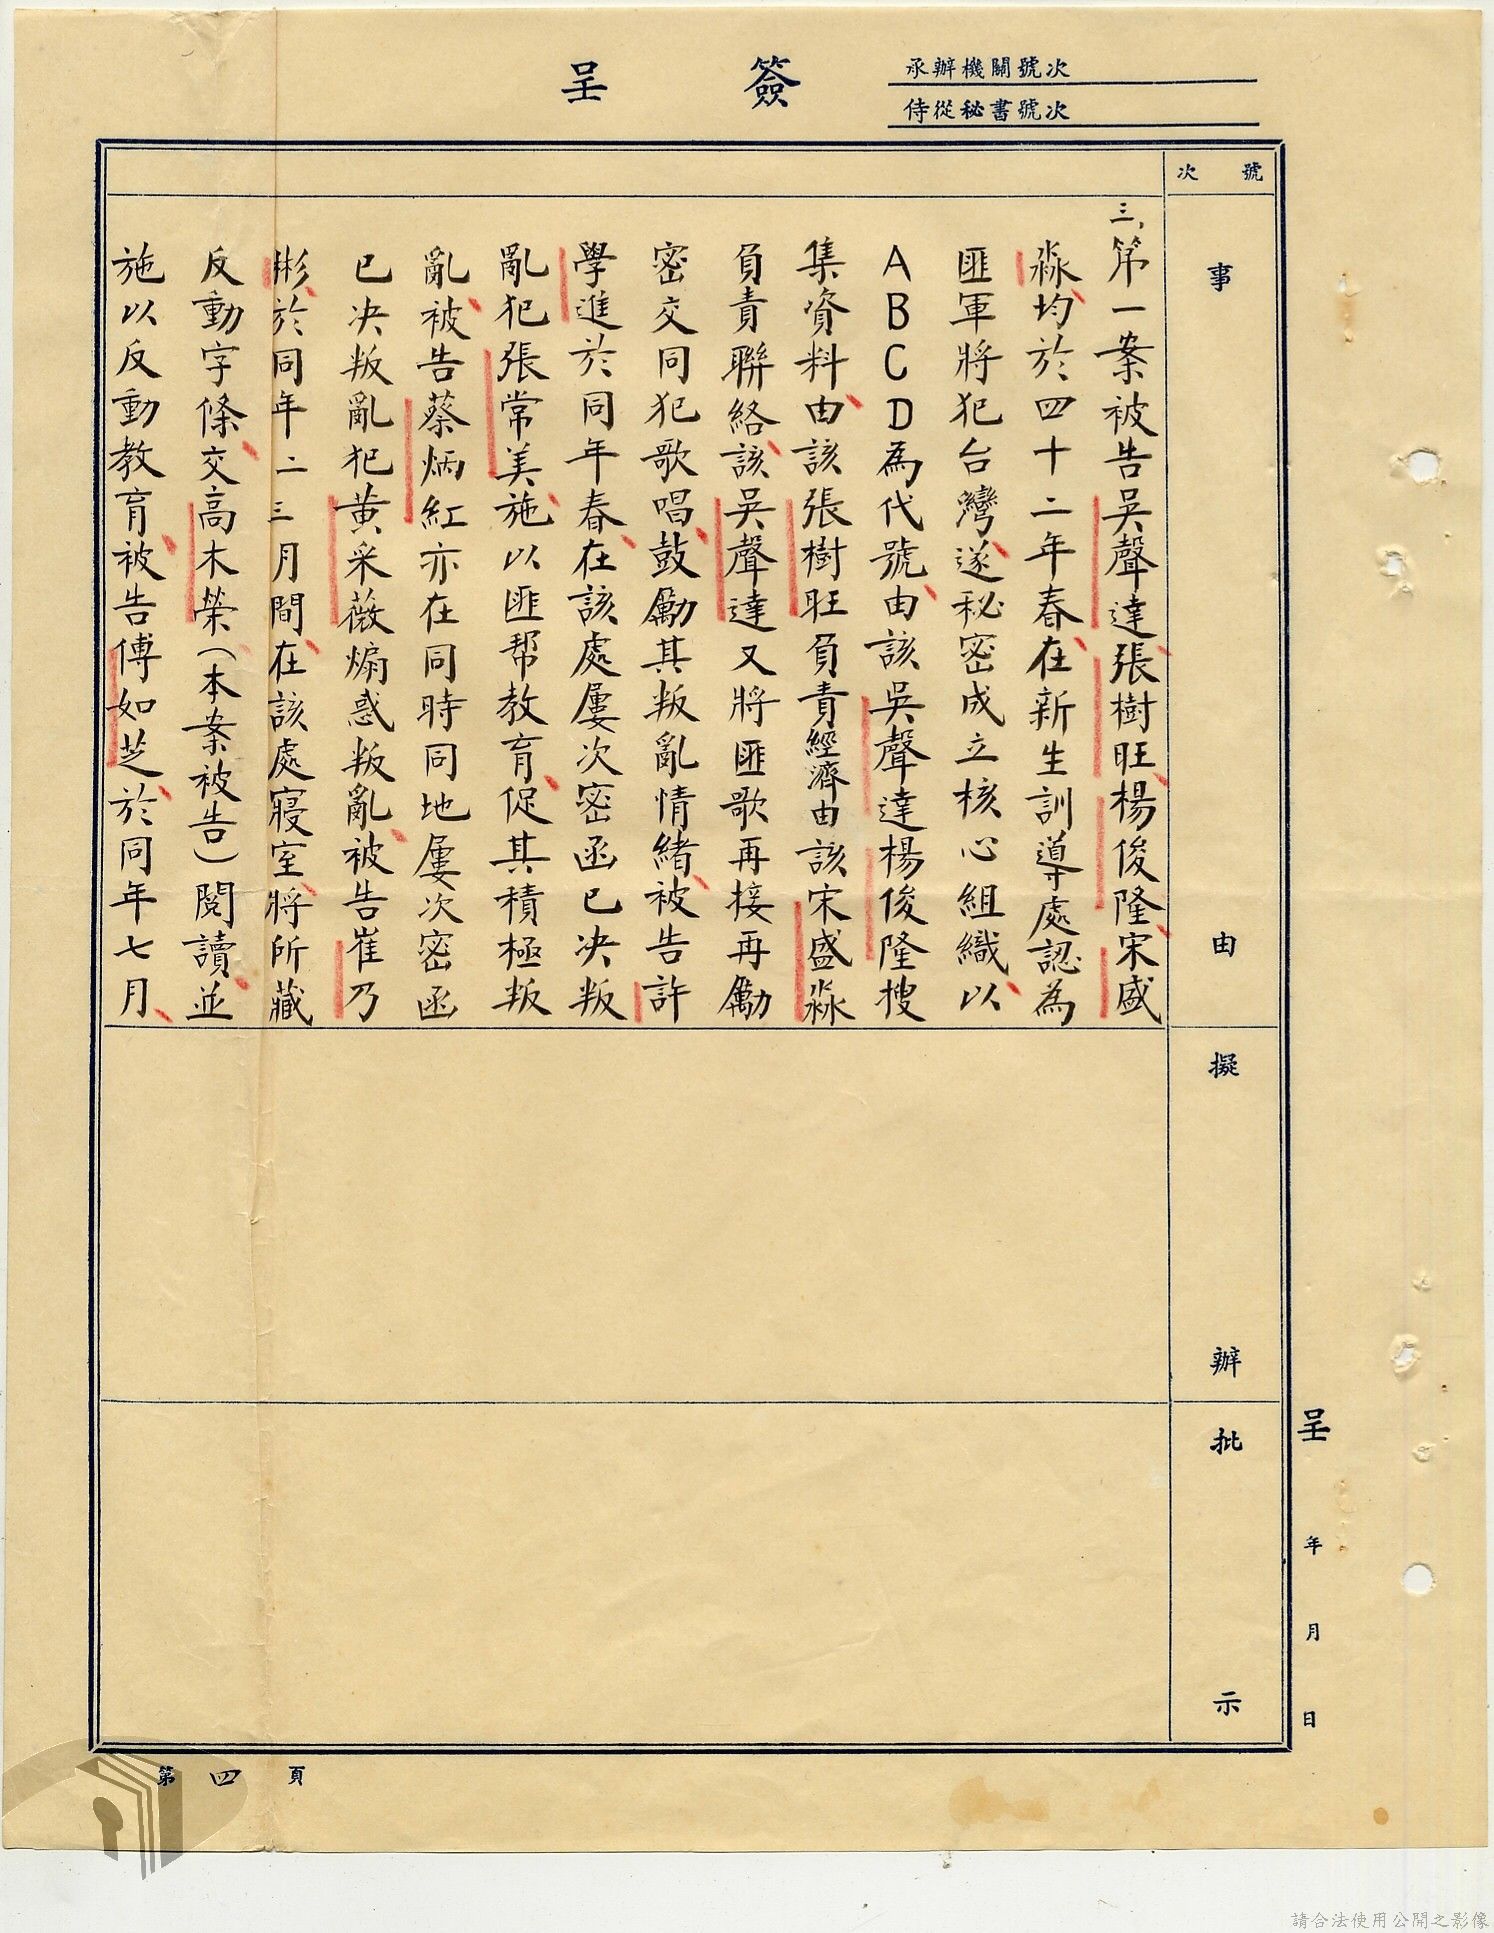 簽呈
承辦機關號次
侍從秘書號次
號次
事由
三、第一案被告吳聲達、張樹旺、楊俊隆、宋盛
淼、均於四十二年春、在新生訓導處認為
匪軍將犯台灣、遂秘密成立核心組織、以
ABCD為代號、由該吳聲達楊俊隆搜
集資料、由該張樹旺負責經濟由該宋盛淼
負責聯絡、該吳聲達又將匪歌再接再勵
密交同犯歌唱、鼓勵其叛亂情緒、被告許
學進於同年春、在該處屢次密函已決叛
亂犯張常美、施以匪帮教育、促其積極叛
亂、被告蔡炳紅亦在同時同地屢次密函
已決叛亂犯黃采薇煽惑叛亂、被告崔乃
彬、於同年二三月間、在該處寢室、將所藏
反動字條、交高木榮、(本案被告)閱讀、並
施以反動教育、被告傅如芝、於同年七月、
擬辦
批示
呈
年
月
日
第四頁
請合法使用公開之影像